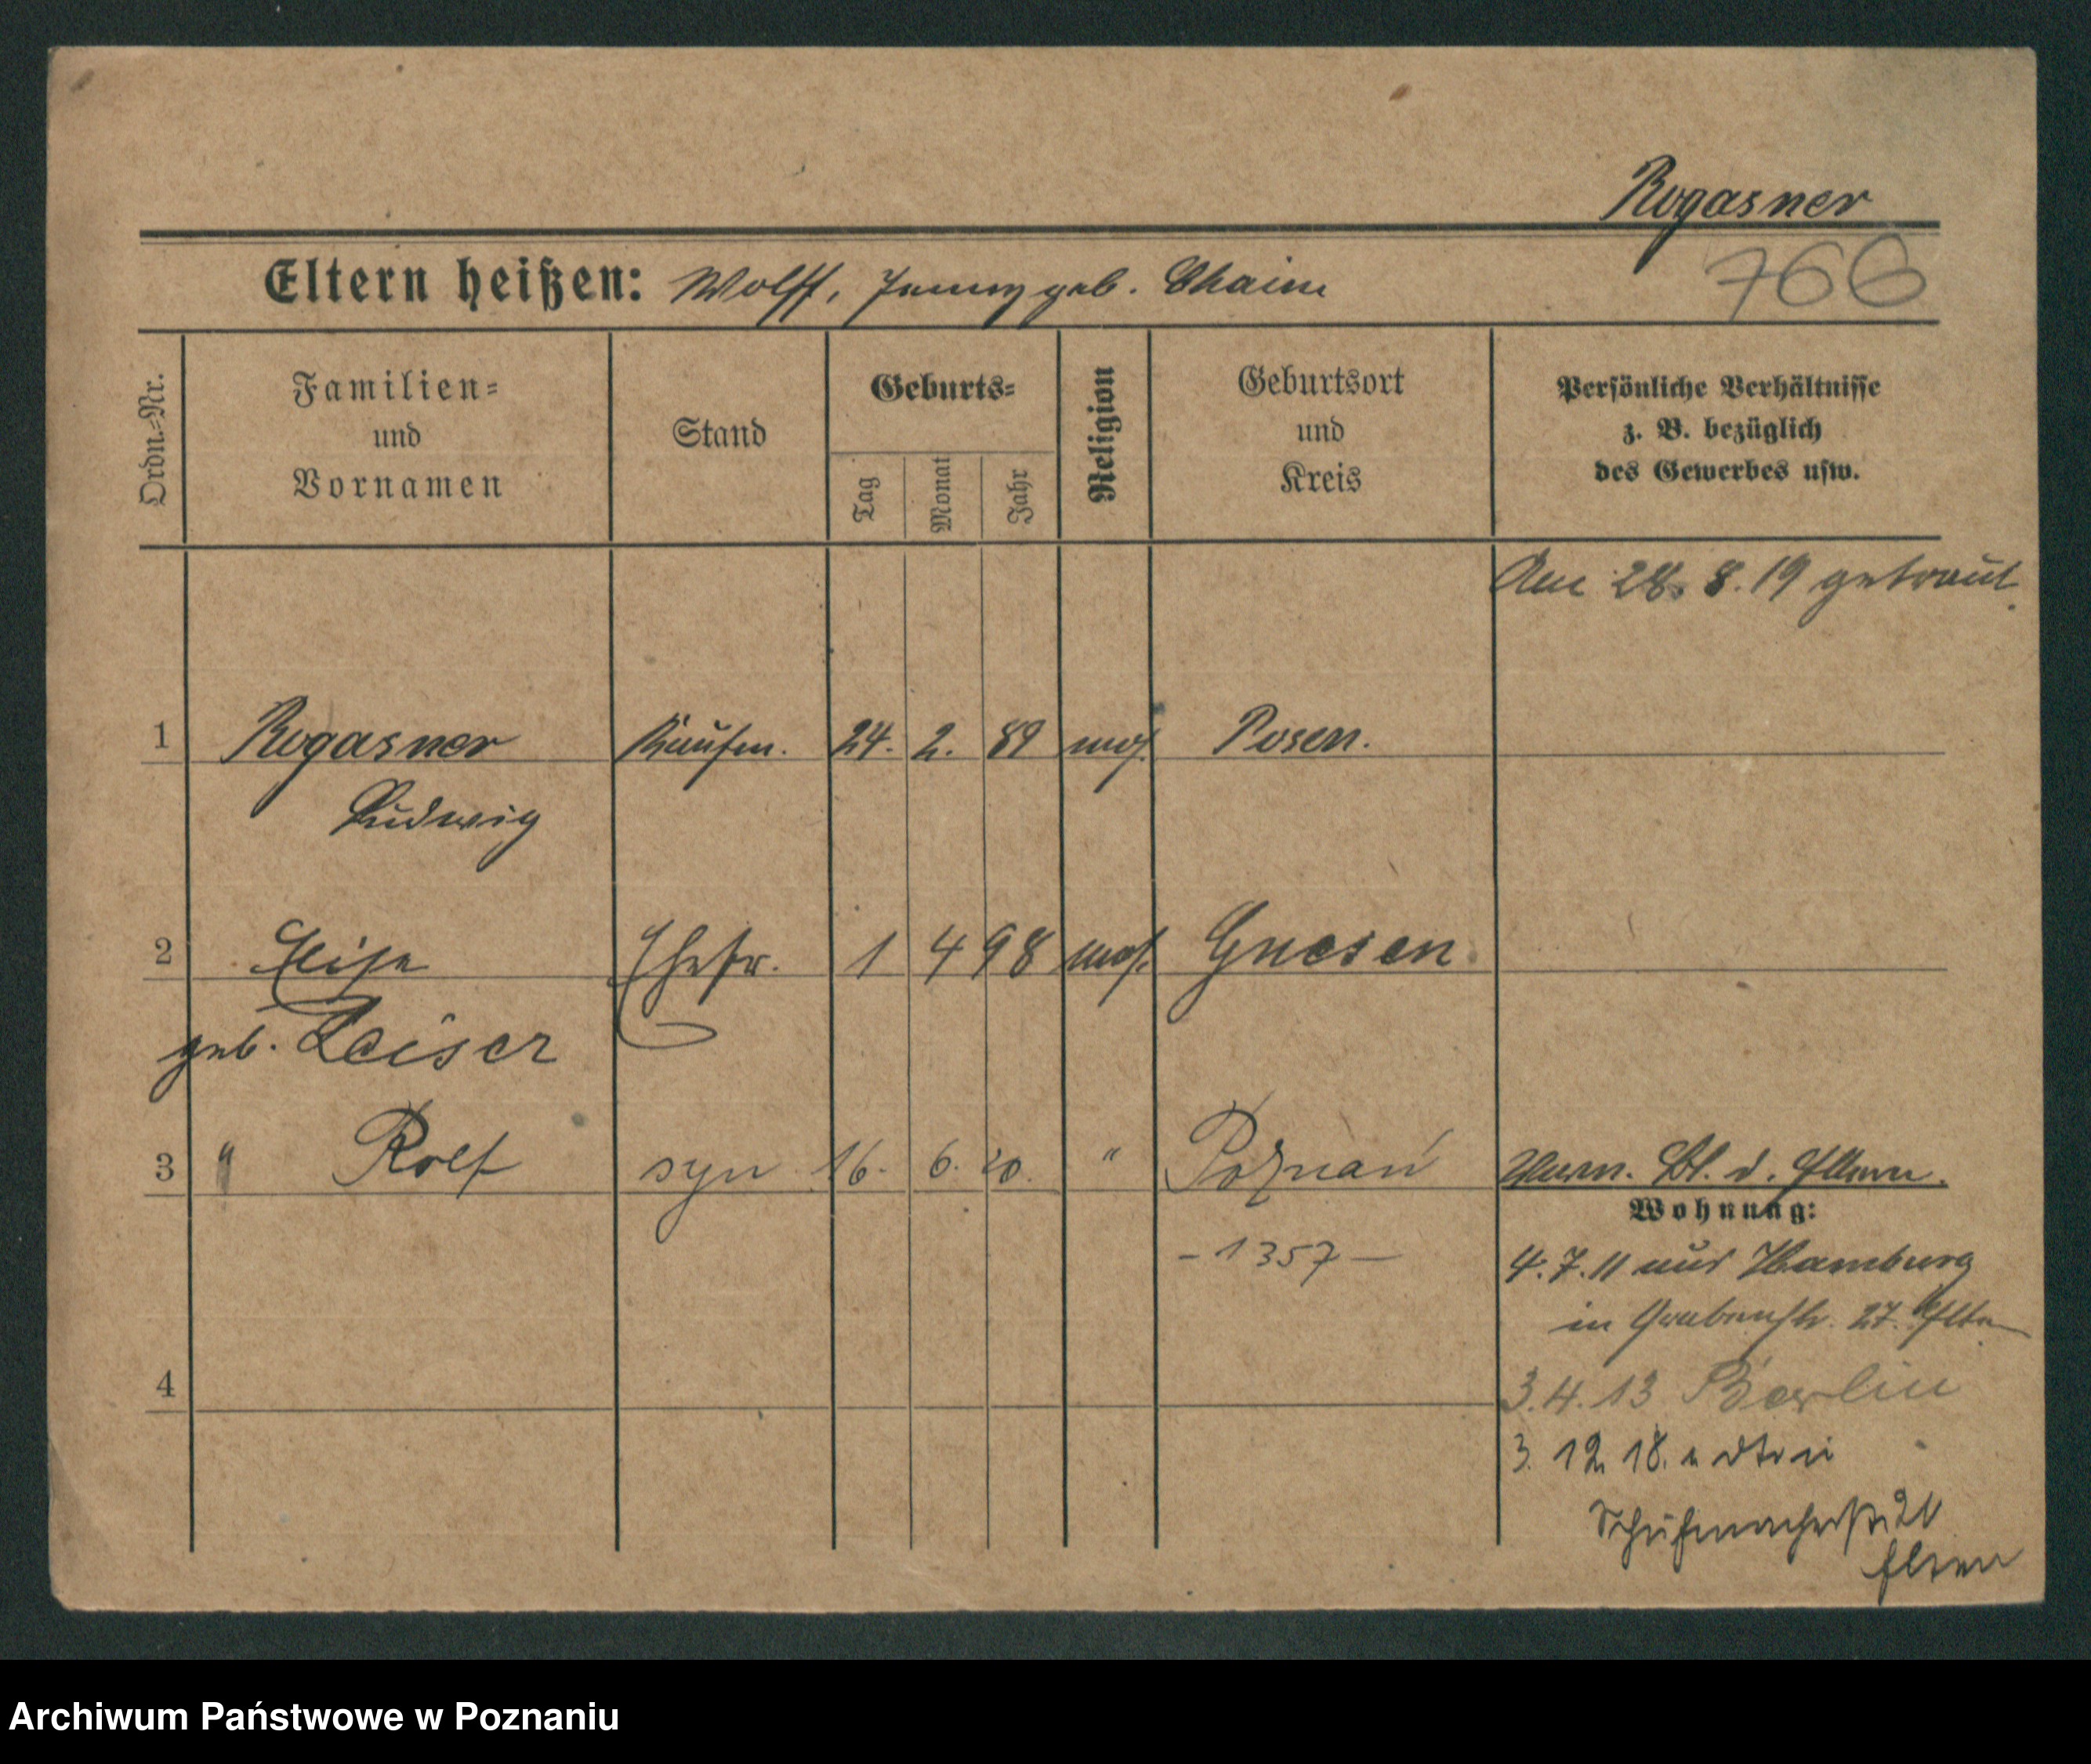 Rogasner
766
Eltern heißen: Wolff, Jenny geb. Chaim
Ordn.-Nr.
Familien-
und
Vornamen
Stand
Geburts-
Tag
Monat
Jahr
Religion
Geburtsort
und
Kreis
Persönliche Verhältnisse
z. B. bezüglich
des Gewerbes usw.
Am 28. 8. 19 getraut.
1 Rogasner Kaufm. 24. 2. 89 mos. Posen.
Ludwig
2 Elise Ehefr. 1 4 98 mos. Gnesen
geb. Leiser
3 " Rolf syn 16. 6. 20. " Poznań
Bl. d. Eltern.
Wohnung:
- 1357 -
4. 7. 11 aus Hamburg
in Grabenstr. 27. Elte
4
3. 4. 13 Berlin
3. 12. 18.
Schuhmacherstr. 21
Eltern
Archiwum Państwowe w Poznaniu